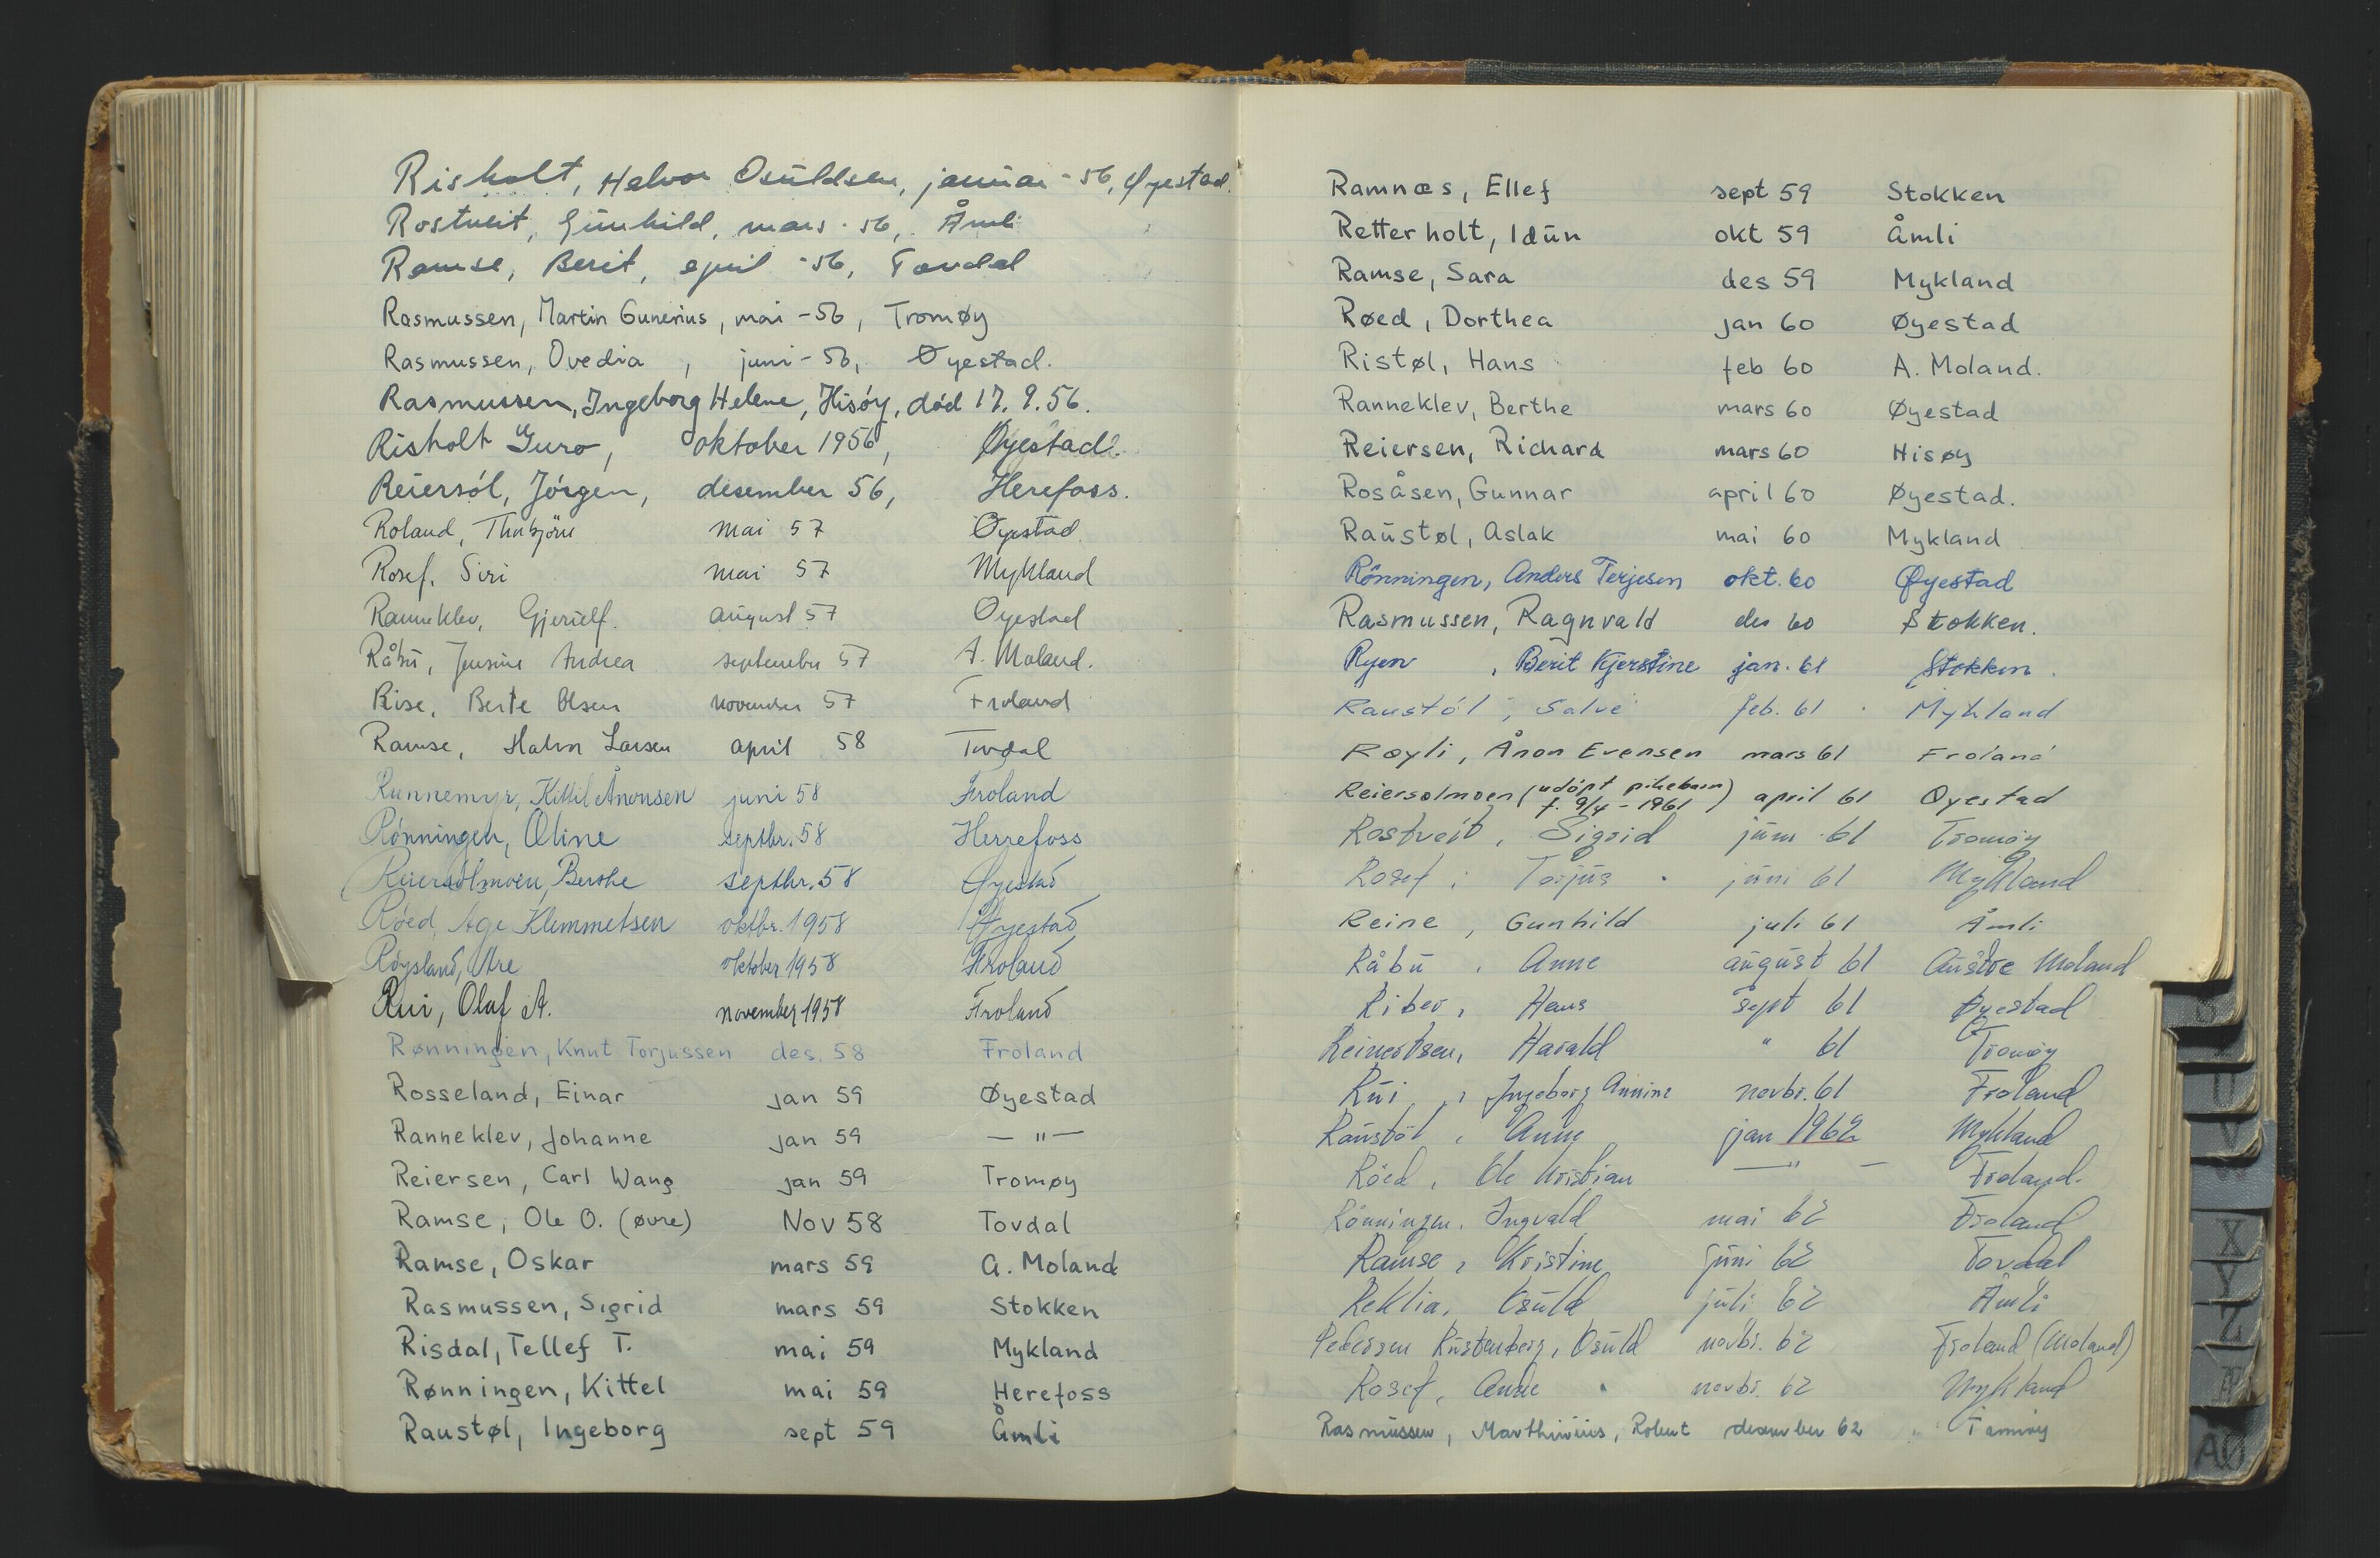 Risholt, Halvor Osuldsen, januar - 56, Øyestad.
Rostveit, Gunhild, mars - 56, Åmli
Ramse, Berit, april - 56, Tovdal
Rasmussen, Martin Gunerius, mai - 56, Tromøy
Rasmussen, Ovedia, juni - 56, Øyestad.
Rasmussen, Ingeborg Helene, Hisøy, død 17. 9. 56.
Risholt Guro, oktober 1956, Øyestad.
Reiersøl, Jörgen, desember 56, Herefoss.
Roland, Thorbjörn mai 57 Øyestad
Rosef, Siri mai 57 Mykland
Ranneklev, Gjerulf. august 57 Øyestad
Råbu, Jensine Andrea september 57 A. Moland.
Rise, Berte Olsen november 57 Froland
Ramse, Halvor Larsen april 58 Tovdal
Runnemyr, Kittil Ånonsen juni 58 Froland
Rönningen, Oline septbr. 58 Herrefoss
Reiersølmoen, Berthe septbr. 58 Øyestad
Röed, Åge Klemmetsen oktbr. 1958 Øyestad
Röysland, Are oktober 1958 Froland
Rui, Olaf A. november 1958 Froland
Rønningen, Knut Torjussen des. 58 Froland
Rosseland, Einar jan 59 Øyestad
Ranneklev, Johanne jan 59 — " —
Reiersen, Carl Wang jan 59 Tromøy
Ramse, Ole O. (øvre) Nov 58 Tovdal
Ramse, Oskar mars 59 A. Moland
Rasmussen, Sigrid mars 59 Stokken
Risdal, Tellef T. mai 59 Mykland
Rønningen, Kittel mai 59 Herefoss
Raustøl, Ingeborg sept 59 Åmli
Ramnæs, Ellef sept 59 Stokken
Retterholt, Idun okt 59 Åmli
Ramse, Sara des 59 Mykland
Røed, Dorthea jan 60 Øyestad
Ristøl, Hans feb 60 A. Moland.
Ranneklev, Berthe mars 60 Øyestad
Reiersen, Richard mars 60 Hisøy
Rosåsen, Gunnar april 60 Øyestad.
Raustøl, Aslak mai 60 Mykland
Rönningen, Anders Terjesen okt. 60 Øyestad
Rasmussen, Ragnvald des 60 Stokken.
Ryen, Berit Kjerstine jan. 61 Stokken.
Raustöl, Salve feb. 61 Mykland
Røyli, Ånon Evensen mars 61 Froland
Reiersølmoen (udöpt pikebarn f. 9/4 - 1961) april 61 Øyestad
Rostveit, Sigrid juni 61 Tromøy
Rosef, Torjus juni 61 Mykland
Reine, Gunhild juli 61 Åmli
Råbu, Anne august 61 Austre Moland
Riber, Hans sept 61 Øyestad
Reinertsen, Harald " 61 Tromøy
Rui, Ingeborg Annine novbr. 61 Froland
Raustöl, Anne jan 1962 Mykland
Röed, Ole Kristian — " — Froland.
Rönningen, Ingvald mai 62 Froland
Ramse, Kristine juni 62 Tovdal
Reklia, Osuld juli 62 Åmli
Pedersen Rustenberg, Osuld novbr. 62 Froland (Moland)
Rosef, Anne novbr. 62 Mykland
Rasmussen, Marthinius, Robert desember 62 Tromøy
X
Y
Z
Æ
AØ